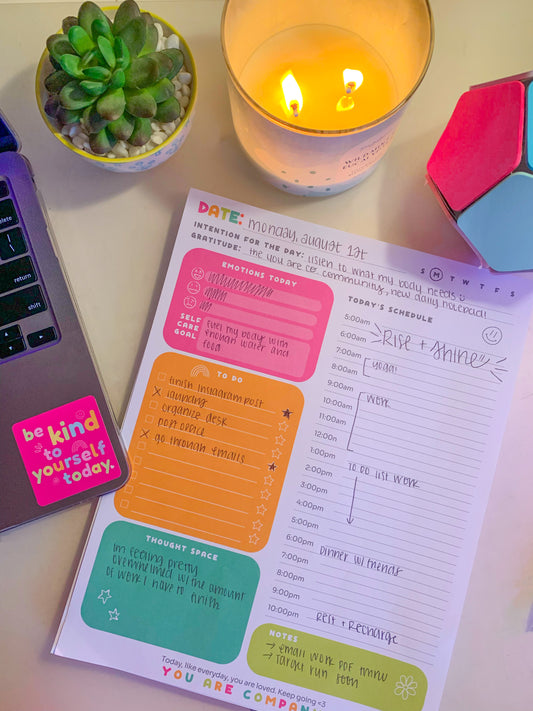 DATE: monday, august 1st
INTENTION FOR THE DAY: listen to what my body needs
GRATITUDE: the you are co. community, new daily notepad!
S M T W T F S
EMOTIONS TODAY
SELF CARE GOAL
fuel my body with
enough water and
food
TO DO
finish instagram post
x laundry
organize desk
post office
x go through emails
THOUGHT SPACE
im feeling pretty
overwhelmed w/ the amount
of work I have to finish
TODAY'S SCHEDULE
5:00am
6:00am Rise + shine
7:00am
8:00am yoga!
9:00am
10:00am work
11:00am
12:00n
1:00pm
2:00pm to do list work
3:00pm
4:00pm
5:00pm
6:00pm
7:00pm Dinner w/ friends
8:00pm
9:00pm
10:00pm Rest + Recharge
NOTES
→ email work PDF
→ Target run soon
Today, like everyday, you are loved. Keep going <3
YOU ARE COMPAN
be kind
to
yourself
today.
return
shift